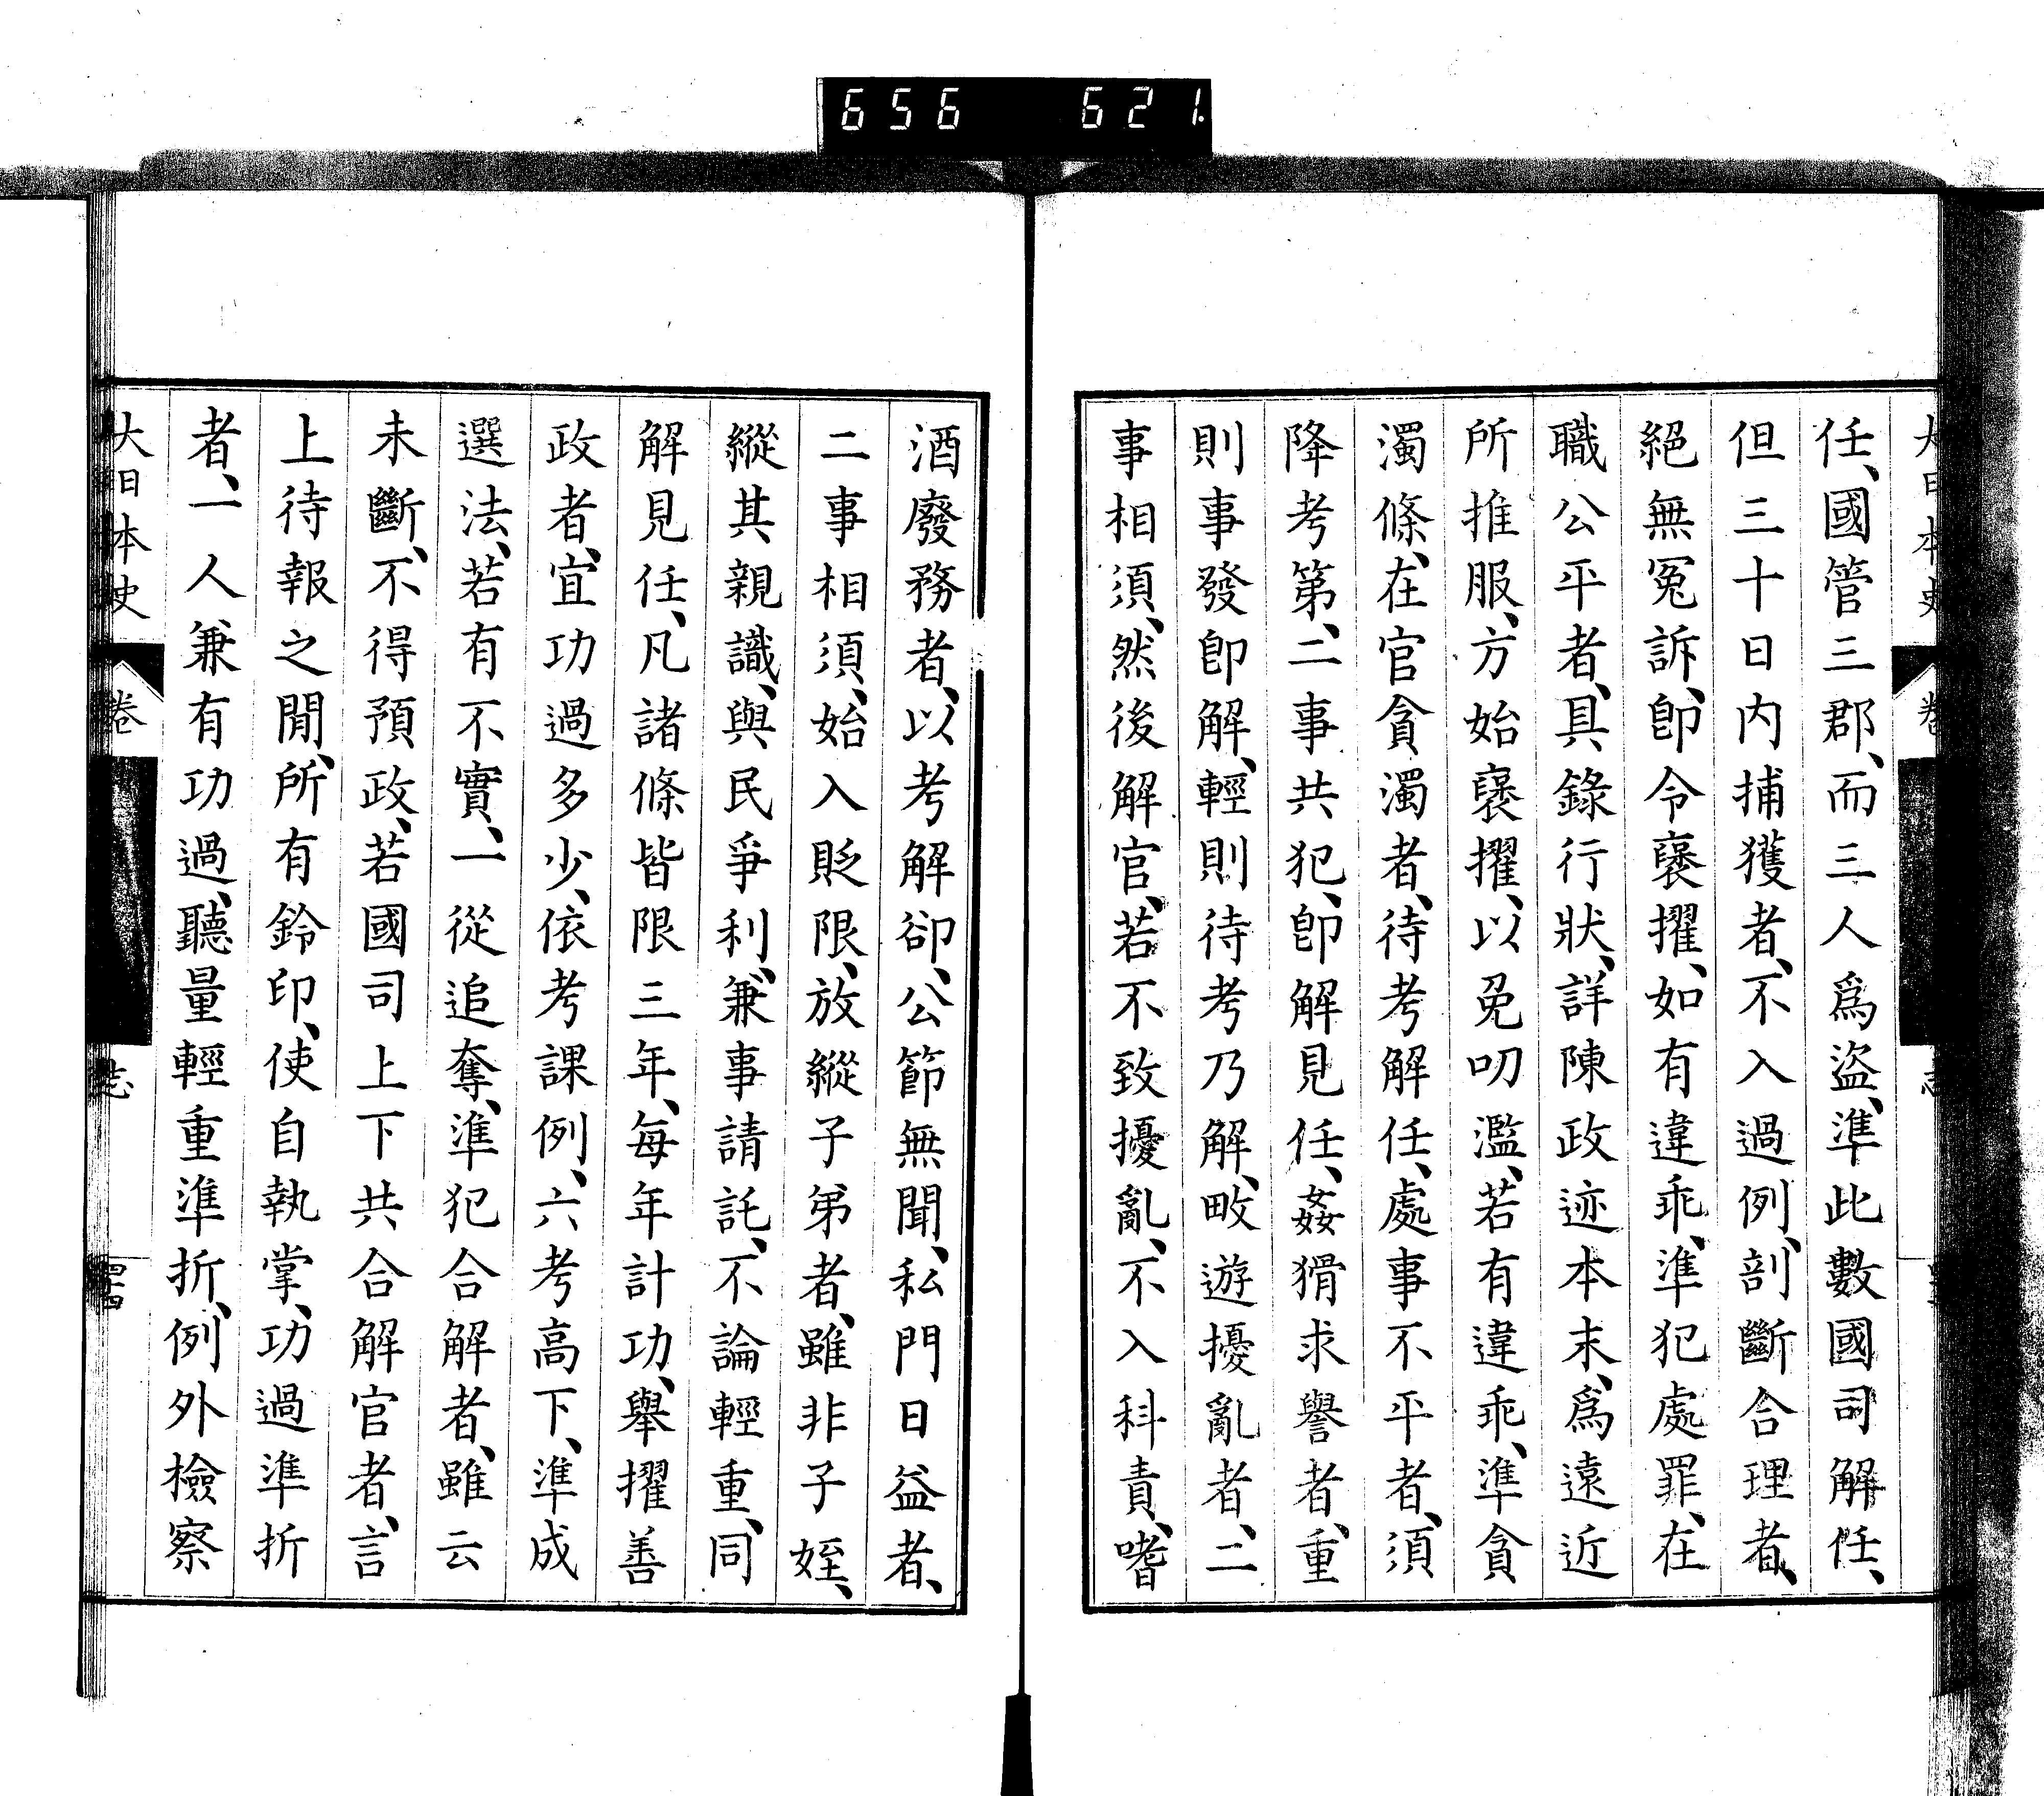 656 621
任、國管三郡、而三人爲盜、準此數國司解任、
但三十日内捕獲者、不入過例、剖斷合理者、
絕無冤訴、卽令襃擢、如有違乖、準犯處罪、在
職公平者、具錄行狀、詳陳政迹本末、爲遠近
所推服、方始襃擢、以免叨濫、若有違乖、準貪
濁條、在官貪濁者、待考解任、處事不平者、須
降考第、二事共犯、卽解見任、姦猾求譽者、重
則事發卽解、輕則待考乃解、畋遊擾亂者、二
事相須、然後解官、若不致擾亂、不入科責、嗜
酒廢務者、以考解卻、公節無聞、私門日益者、
二事相須、始入貶限、放縱子弟者、雖非子姪、
縱其親識、與民爭利、兼事請託、不論輕重、同
解見任、凡諸條皆限三年、每年計功、舉擢善
政者、宜功過多少、依考課例、六考高下、準成
選法、若有不實、一從追奪、準犯合解者、雖云
未斷、不得預政、若國司上下共合解官者、言
上待報之閒、所有鈴印、使自執掌、功過準折
者、一人兼有功過、聽量輕重準折、例外檢察
大日本史 卷 志